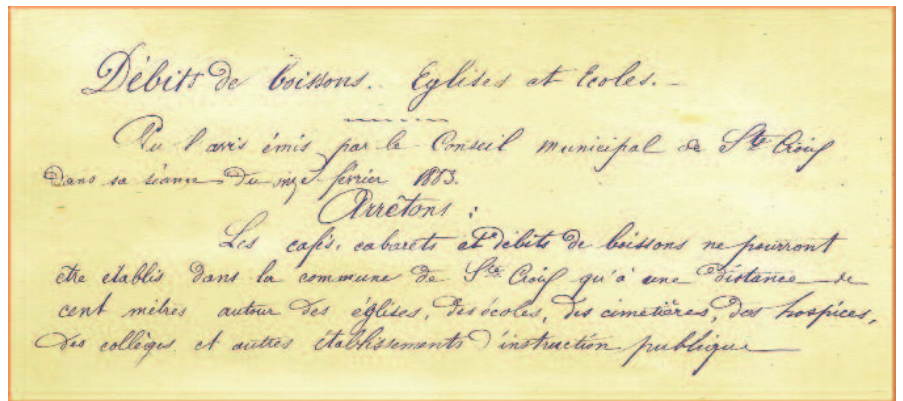 Débits de boissons. Eglises et Ecoles. —
Vu l'avis émis par le Conseil municipal de Ste Croix
dans sa séance du onze février 1883.
Arrêtons :
Les cafés, cabarets et débits de boissons ne pourront
être établis dans la commune de Ste Croix qu'à une distance de
cent mètres autour des églises, des écoles, des cimetières, des hospices,
des collèges et autres établissements d'instruction publique